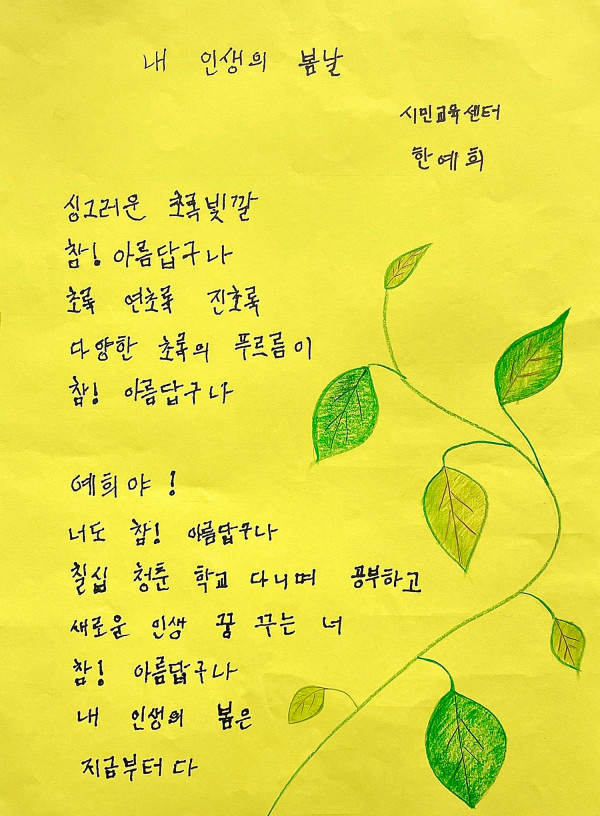 내 인생의 봄날
시민교육센터
한예희
싱그러운 초록빛깔
참! 아름답구나
초록 연초록 진초록
다양한 초록의 푸르름이
참! 아름답구나
예희야!
너도 참! 아름답구나
칠십 청춘 학교 다니며 공부하고
새로운 인생 꿈 꾸는 너
참! 아름답구나
내 인생의 봄은
지금부터다